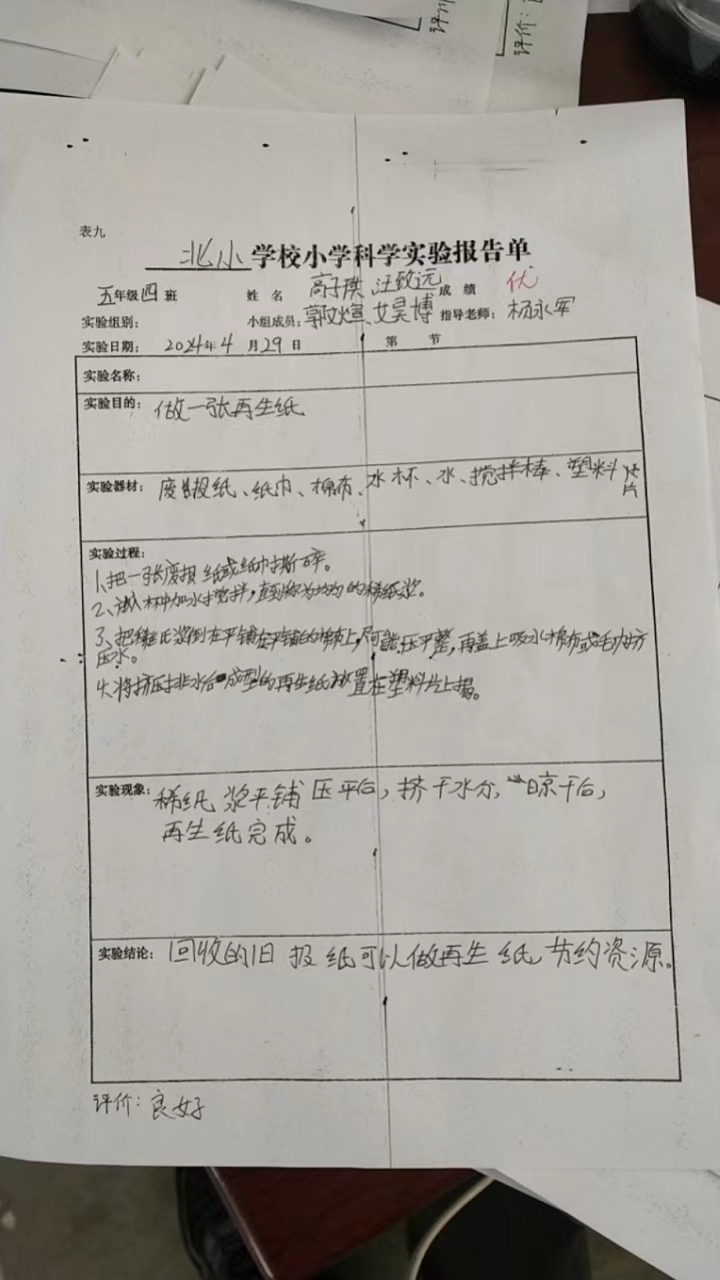 评价：
评价：
表九
北小学校小学科学实验报告单
五年级四班 姓名 高子琪 汪致远 成绩 优
实验组别： 小组成员： 郭文煊 艾昊博 指导老师： 杨永军
实验日期： 2024年4月29日 第 节
实验名称：
实验目的： 做一张再生纸
实验器材： 废旧报纸、纸巾、棉布、水杯、水、搅拌棒、塑料片
实验过程：
1、把一张废报纸或纸巾撕碎。
2、放入杯中加水搅拌，直到称为均匀的稀纸浆。
3、把稀纸浆倒在平铺在平铺的棉布上，尽可能压平整，再盖上吸水棉布或毛巾挤
压水。
4、将挤压排水后成型的再生纸放置在塑料片上揭。
实验现象： 稀纸浆平铺压平后，挤干水分，晾干后，
再生纸完成。
实验结论： 回收的旧报纸可以做再生纸，节约资源。
评价：良好